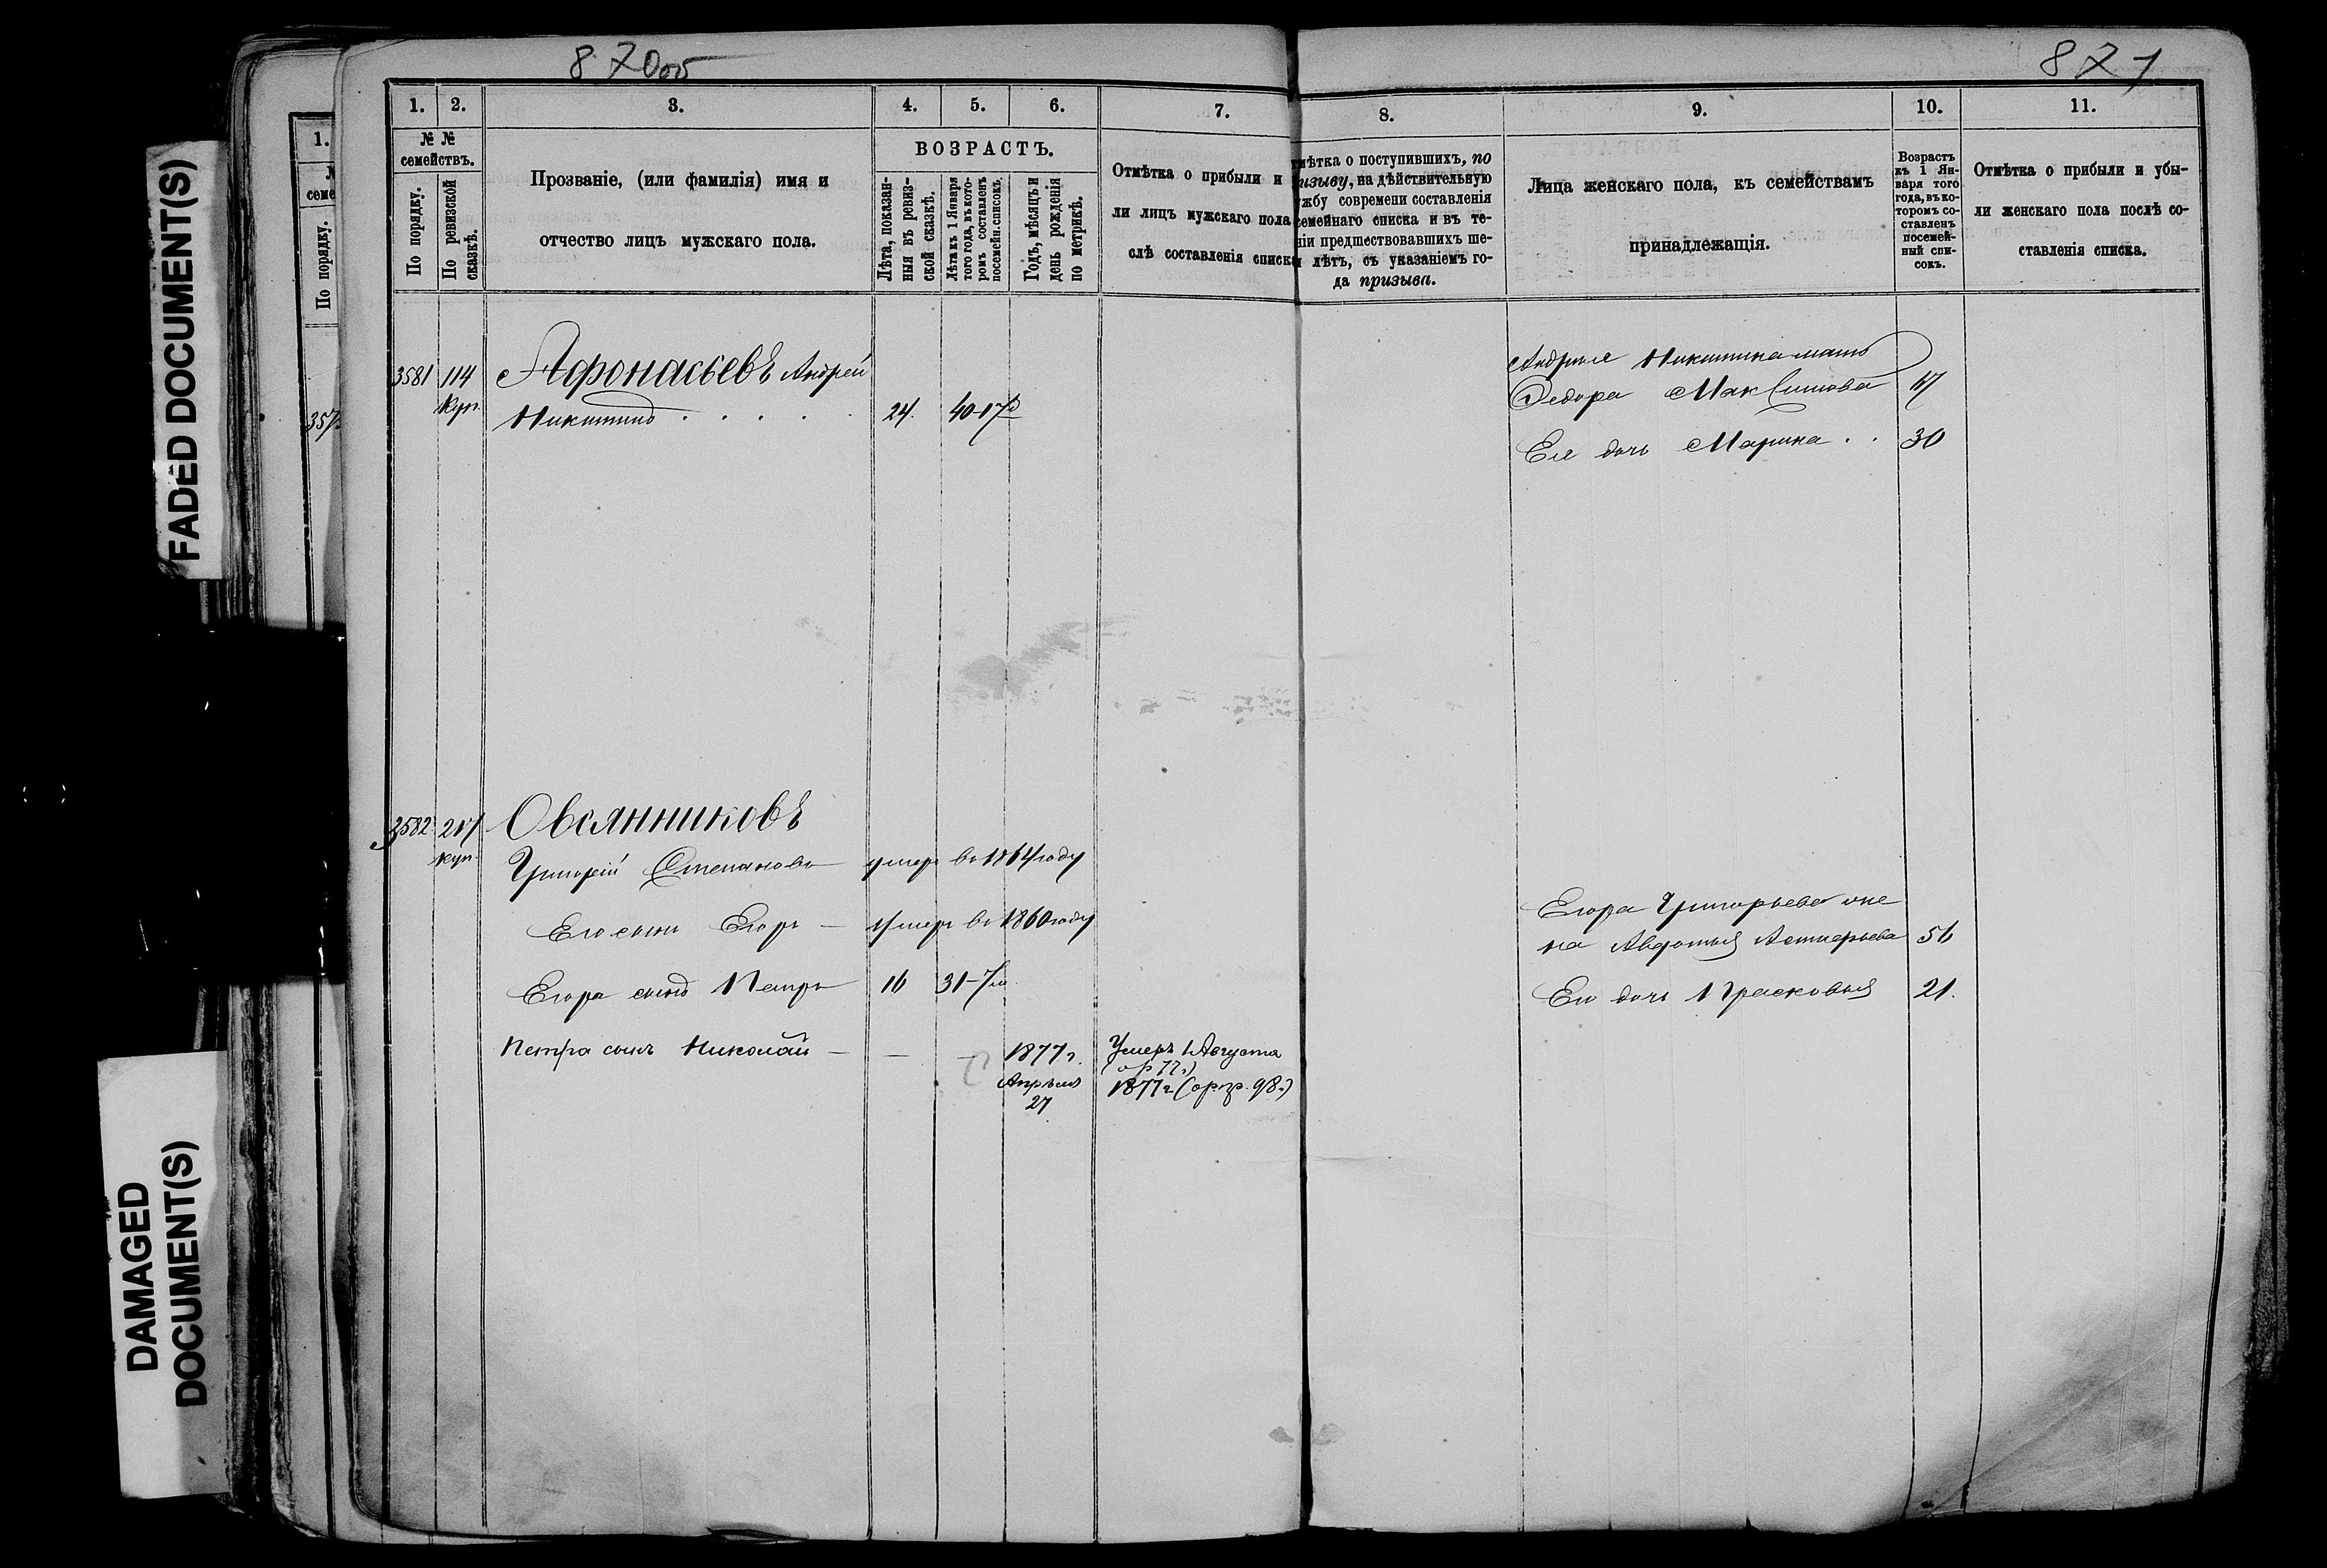 870об
871
FADED DOCUMENT(S)
DAMAGED
DOCUMENT(S)
1.
По порядку.
1. 2. 3. 4. 5. 6. 7.
№ №
семействъ.
По порядку.
По ревизской
сказкѣ.
Прозваніе, (или фамилія) имя и
отчество лицъ мужскаго пола.
ВОЗРАСТЪ.
Лѣта, показан-
ныя въ ревиз-
ской сказкѣ.
Лѣта къ 1 Января
того года, въ кото-
ромъ составленъ
посемейн. списокъ.
Годъ, мѣсяцъ и
день рожденія
по метрикѣ.
Отмѣтка о прибыли и
ли лицъ мужскаго пола
слѣ составленія списка
8. 9. 10. 11.
мѣтка о поступившихъ, по
изыву, на дѣйствительную
жбу современи составленія
семейнаго списка и въ те-
ніи предшествовавшихъ ше-
и лѣтъ, съ указаніемъ го-
да призыва.
Лица женскаго пола, къ семействамъ
принадлежащія.
Возрастъ
къ 1 Ян-
варя того
года, въ ко-
торомъ со-
ставленъ
посемей-
ный спи-
сокъ.
Отмѣтка о прибыли и убы-
ли женскаго пола послѣ со-
ставленія списка.
3581 114 Афонасьевъ Андрей
куп. Никитинъ 24. 40
Андрея Никитина мать
Федора Максимова
Ея дочь Марина 30
3582 Овсянниковъ
куп. Григорій Степановъ умеръ въ 1864 году
Его сынъ Егоръ — умеръ въ 1860 году
Егора Григорьева же
на Авдотья 56
Егора сынъ Петръ 16 31-7м
Ея дочь Прасковья 21.
Петра сынъ Николай — — — 1877 г. Умеръ 1 Августа
Апрѣля 1877 г.
27